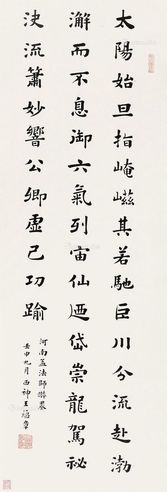 太陽始旦指崦嵫其若馳巨川分流赴渤
澥而不息御六氣列宙仙迺岱崇龍駕祕
決流簫妙響公卿虛己功踰
河南孟法師碑摹
壬申九月西神王蘊章